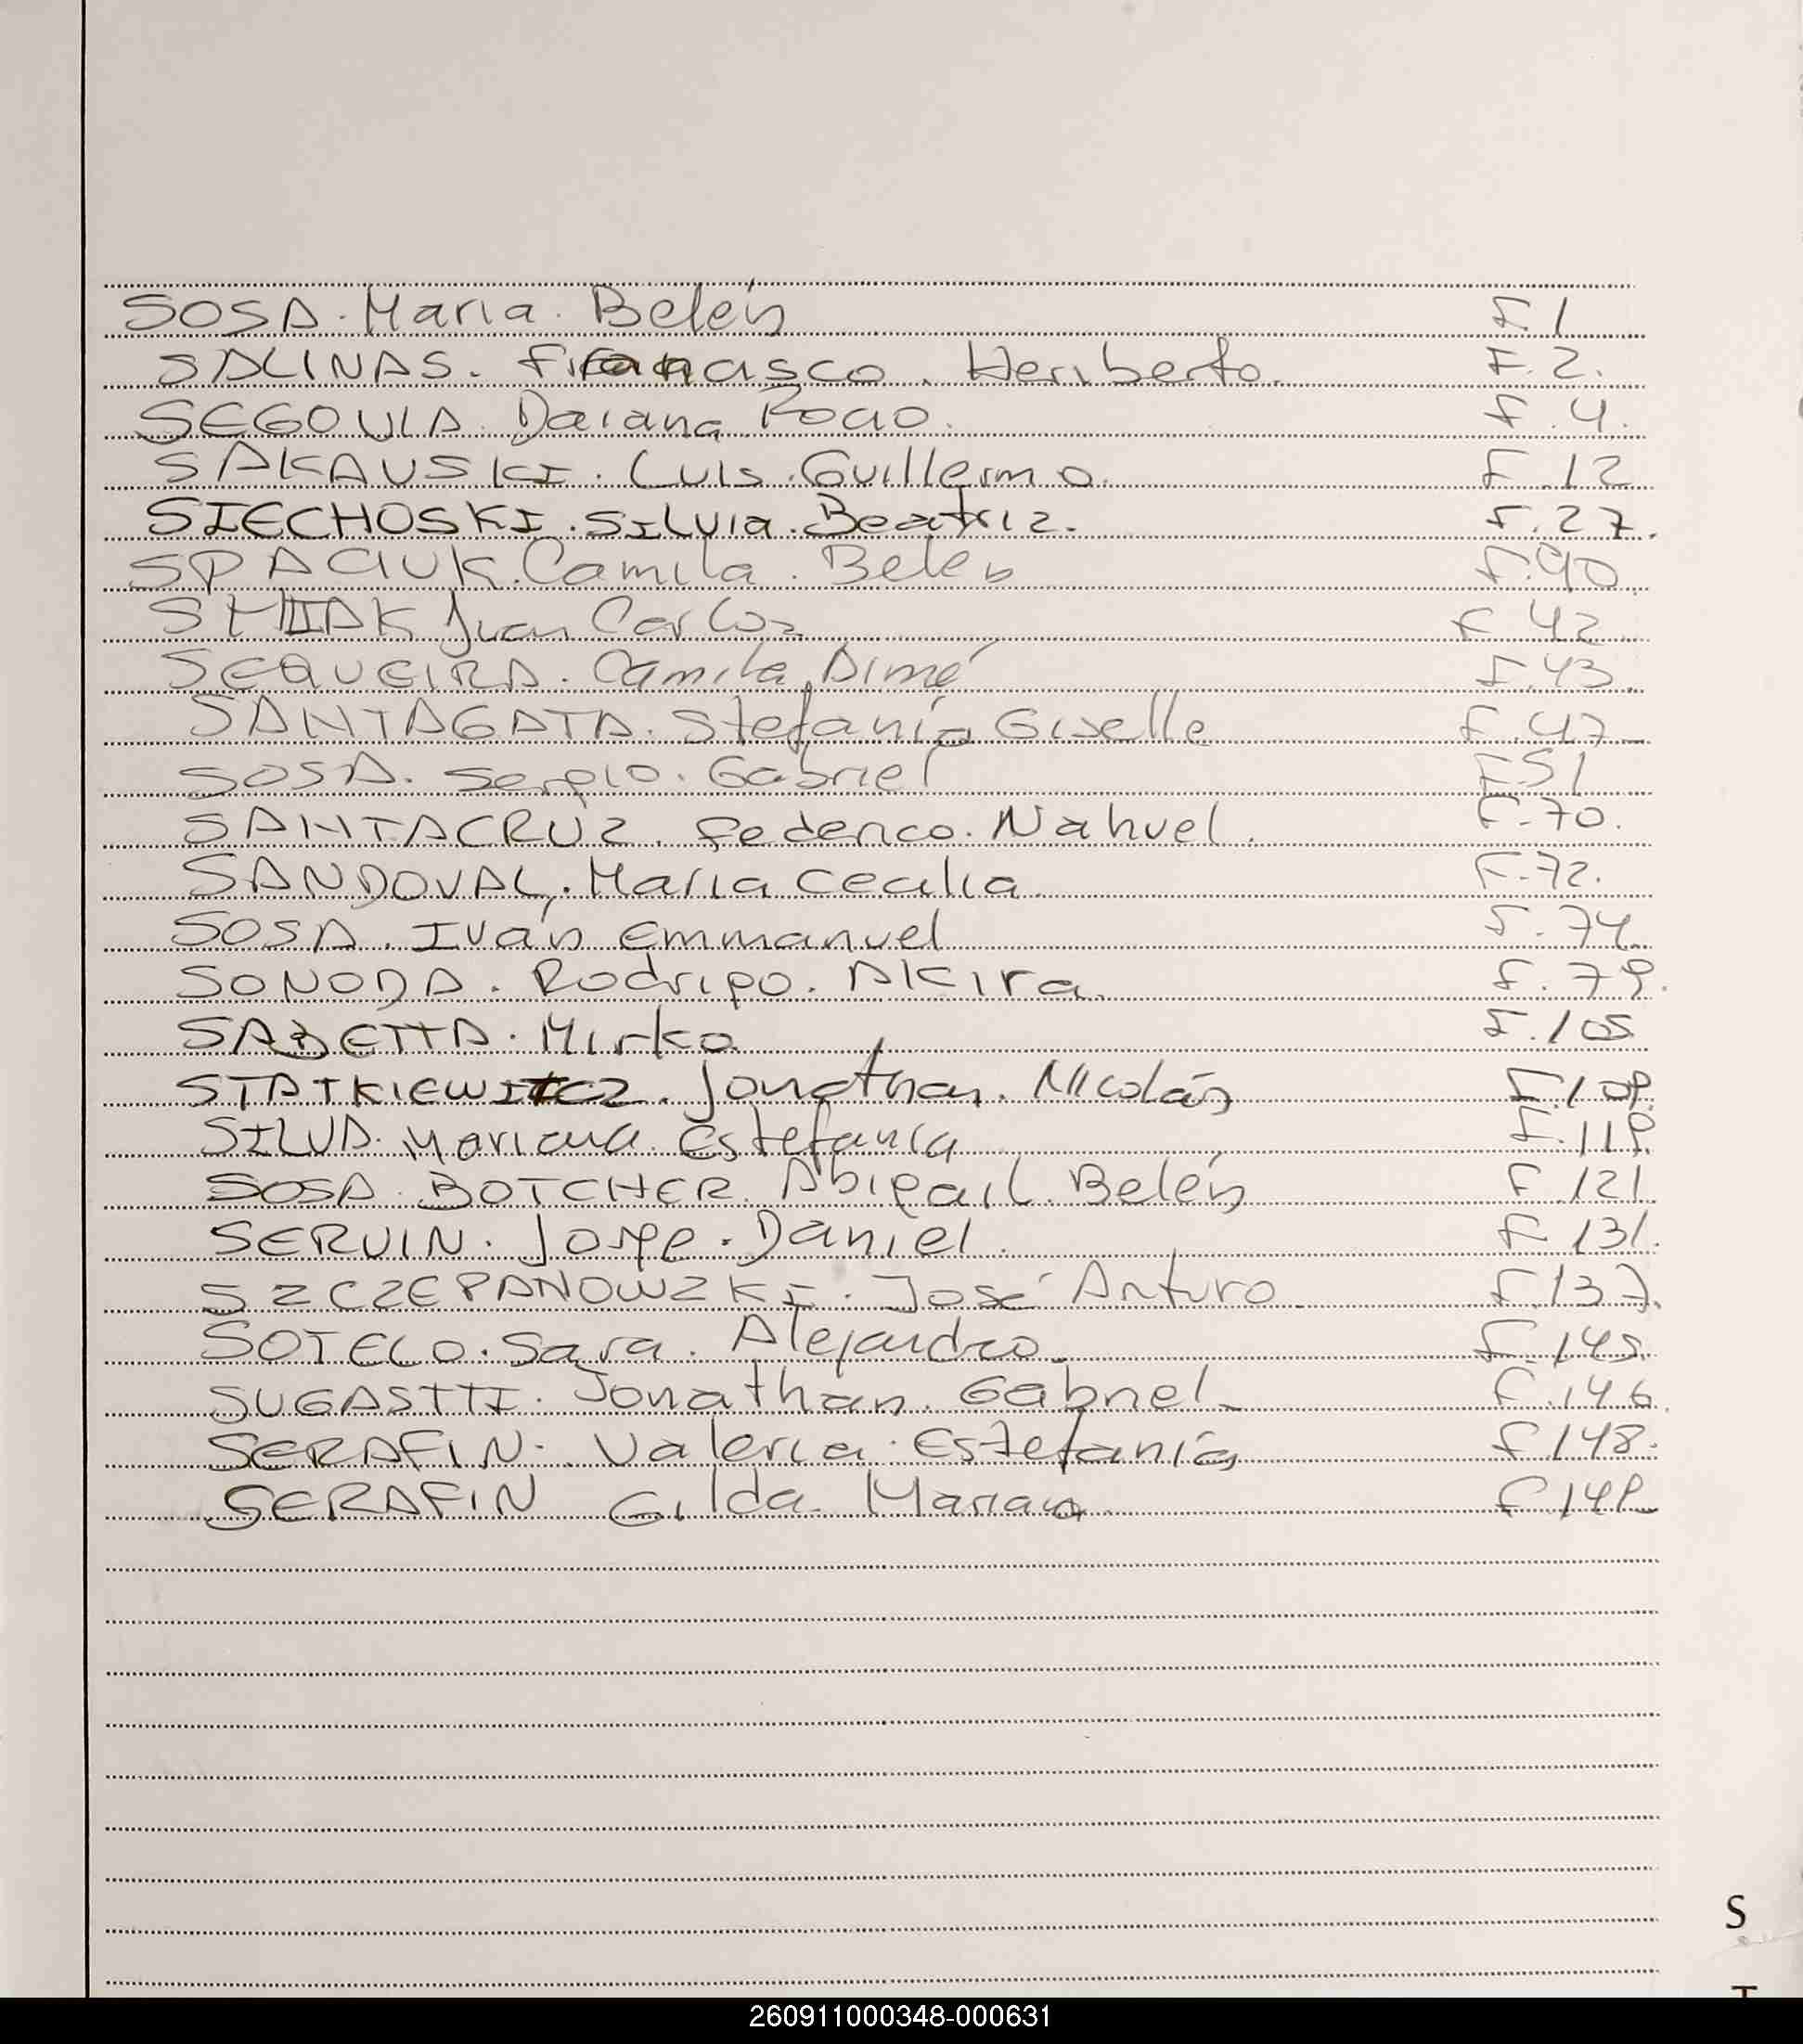 SOSA. Maria. Belén F. 1
SALINAS. Francisco. Heriberto. F. 2.
SEGOVIA. Daiana Rocio. F. 4.
SAKAUSKI. Luis. Guillermo. F. 12
SIECHOSKI. SILVIA. Beatriz. F. 27.
SPACIUK. Camila. Belén F. 40
SMIAK Juan Carlos F. 42
SEQUEIRA. Camila Aimé F. 43.
SANTAGATA. Stefanía Giselle F. 47
SOSA. Sergio. Gabriel F. 51
SANTACRUZ. Federico. Nahuel. F. 70.
SANDOVAL. Maria Cecilia F. 72.
SOSA. Iván Emmanuel F. 74.
SONODA. Rodrigo. Akira. F. 79.
SABETTA. Mirko F. 105
STATKIEWICZ. Jonathan. Nicolás F. 109.
SILVA. Mariana. Estefania F. 119.
SOSA. BOTCHER. Abigail. Belén F. 121.
SERVIN. Jorge. Daniel. F. 131.
SZCZEPANOWZKI. José Arturo F. 137.
SOTELO. Sara. Alejandra F. 145.
SUGASTTI. Jonathan. Gabriel F. 146.
SERAFIN. Valeria. Estefanía F. 148.
SERAFIN Gilda Mariana F. 149
S
T
260911000348-000631